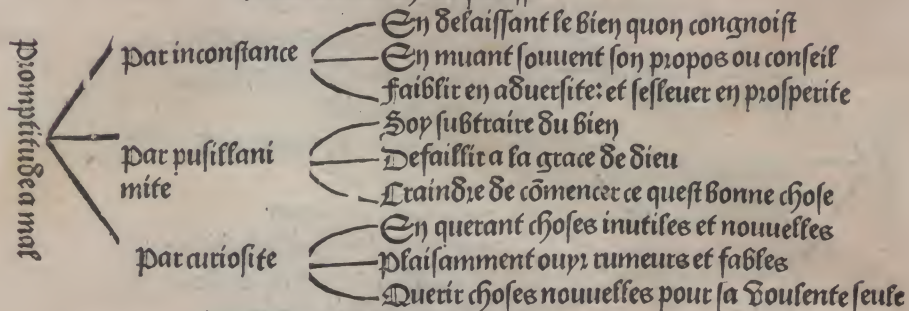 Promptitude a mal
Par inconstance
En delaissant le bien quon congnoist
En muant souuent son propos ou conseil
Faiblir en aduersite: et sesleuer en prosperite
Par pusillani
mite
Soy subtraire du bien
Defaillir a la grace de dieu
Craindre de cõmencer ce quest bonne chose
Par curiosite
En querant choses inutiles et nouuelles
Plaisamment ouyr rumeurs et fables
Querir choses nouuelles pour sa voulente seule